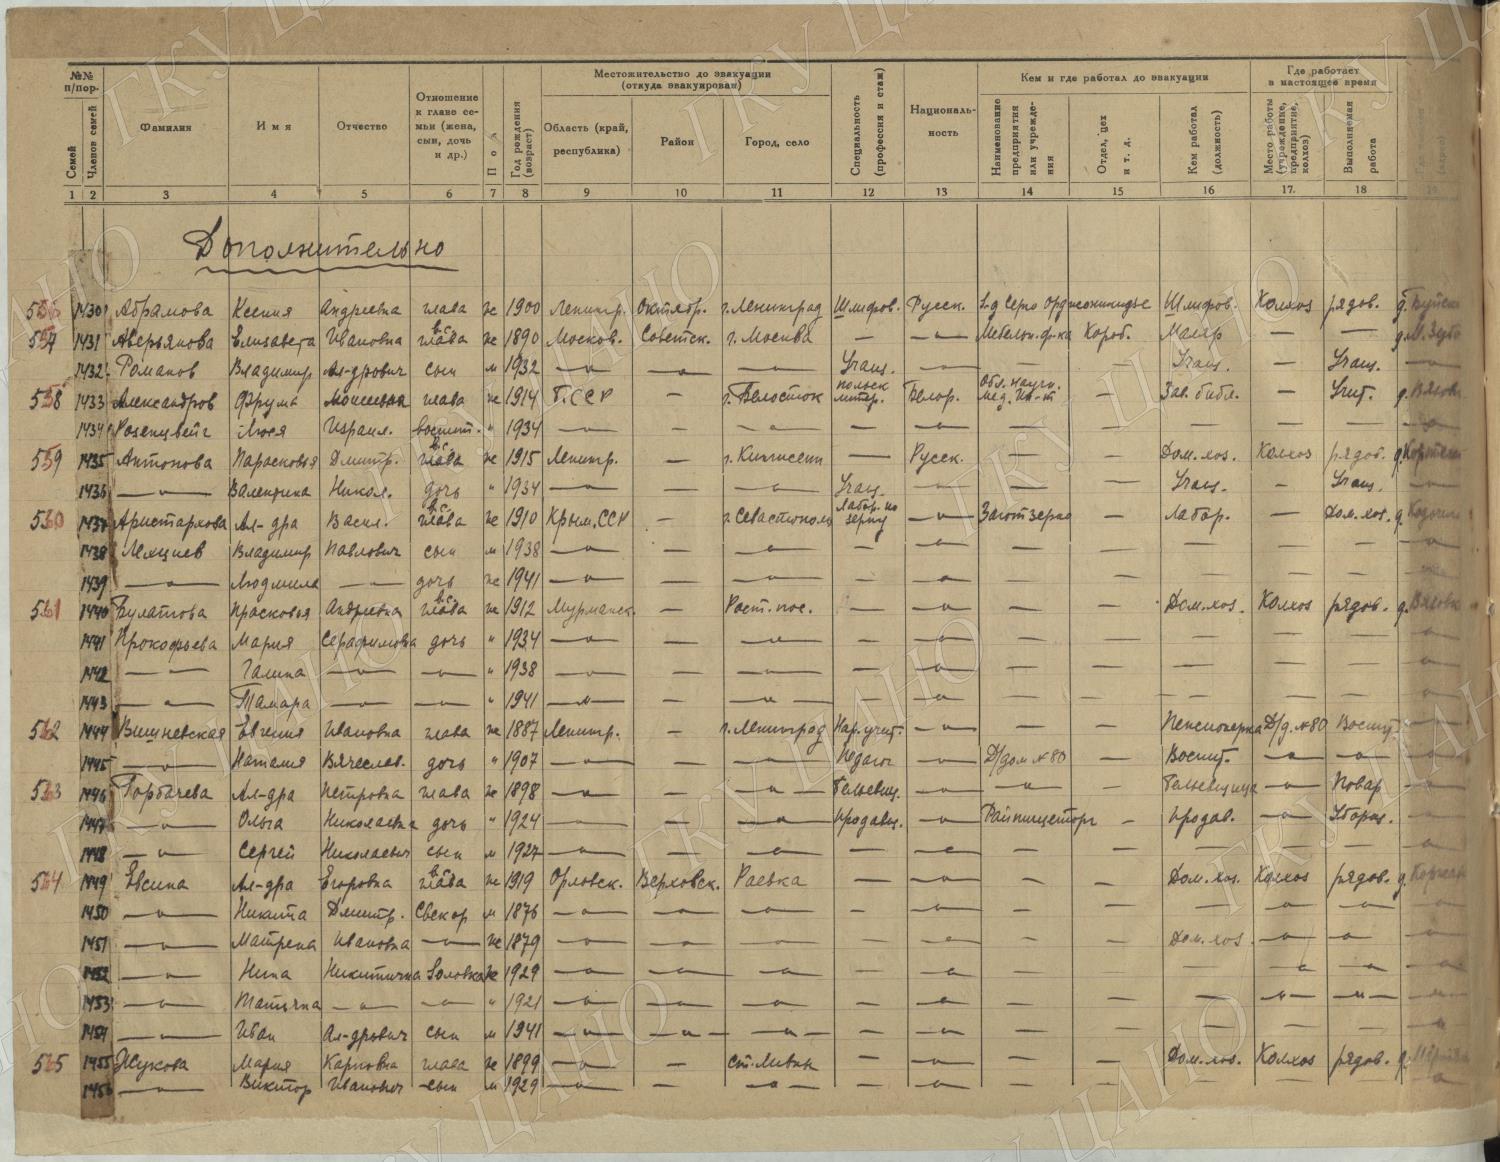 №№ п/пор.
Семей
Членов семей
Фамилия
Имя
Отчество
Отношение к главе семьи (жена, сын, дочь и др.)
Пол
Год рождения (возраст)
Местожительство до эвакуации (откуда эвакуирован)
Область (край, республика)
Район
Город, село
Специальность (профессия и стаж)
Националь-ность
Кем и где работал до эвакуации
Наименование предприятия или учрежде-ния
Отдел, цех и т. д.
Кем работал (должность)
Где работает в настоящее время
Место работы (учреждение, предприятие, колхоз)
Выполняемая работа
1 2 3 4 5 6 7 8 9 10 11 12 13 14 15 16 17. 18 19
Дополнительно
556 1430 Абрамова Ксения Андреевна глава ж 1900 Ленингр. Октябр. г. Ленинград Шлифов. Русск. З-д Серго Орджоникидзе Шлифов. Колхоз рядов.
557 1431 Аверьянова Елизавета Ивановна глава в.с. ж 1890 Москов. Советск. г. Москва — —"— Мебельн. ф-ка Короб. Маляр — —
1432 Романов Владимир Ал-дрович сын м 1932 —"— —"— —"— Учащ. —"— Учащ. — Учащ. —"—
558 1433 Александров Фрума Моисеевна глава ж 1914 БССР — г. Белосток польск литер. Белор. Обл. научн. мед. ин-т — Зав. библ. — Учит.
1434 Розенцвейг Люся Израил. воспит. " 1934 —"— — —"— — — — — — — — —"—
559 1435 Антонова Парасковья Дмитр. глава в.с. ж 1915 Ленингр. — г. Кингисепп — Русск. — — Дом. хоз. Колхоз рядов.
1436 —"— Валентина Никол. дочь " 1934 —"— — —"— Учащ. —"— — — Учащ. — Учащ. —"—
560 1437 Аристархова Ал-дра Васил. глава в.с. ж 1910 Крым. ССР — г. Севастополь Лабор. по зерну —"— Заготзерно — Лабор. — Дом. хоз.
1438 Владимир Павлович сын м 1938 —"— — —"— — —"— — — — — — —"—
1439 —"— Людмила —"— дочь ж 1941 —"— — —"— — —"— — — — — — —"—
561 1440 Булатова Прасковья Андреевна глава в.с. ж 1912 Мурманск. — Рост. пос. — —"— — — Дом. хоз. Колхоз рядов.
1441 Прокофьева Мария Серафимовна дочь " 1934 —"— — —"— — —"— — — — — — —"—
1442 —"— Галина —"— —"— " 1938 —"— — —"— — —"— — — — — — —"—
1443 —"— Тамара —"— — " 1941 —"— — —"— — —"— — — — — — —"—
562 1444 Вишневская Евгения Ивановна глава ж 1887 Ленингр. — г. Ленинград Нар. учит. —"— — — Пенсионерка Д/д. №80 Воспит. —"—
1445 —"— Наталия Вячеслав. дочь " 1907 —"— — —"— Педагог —"— Д/дом №80 — Воспит. —"— —"— —"—
563 1446 Горбачева Ал-дра Петровна глава ж 1898 —"— — —"— Бельевщ. —"— —"— — Бельевщица —"— Повар —"—
1447 —"— Ольга Николаевна дочь " 1924 —"— — —"— Продавщ. —"— Райпищеторг — Продав. —"— Уборщ. —"—
1448 —"— Сергей Николаевич сын м 1927 —"— — —"— — —"— — — — — — —"—
564 1449 Евсина Ал-дра Егоровна глава в.с. ж 1919 Орловск. Верховск. Раевка — —"— — — Дом. хоз. Колхоз рядов.
1450 —"— Никита Дмитр. Свекор м 1876 —"— —"— —"— — —"— — — — —"— —"— —"—
1451 —"— Матрена Ивановна —"— ж 1879 —"— —"— —"— — —"— — — Дом. хоз. —"— —"— —"—
1452 —"— Нина Никитична Золовка ж 1929 —"— —"— —"— — —"— — —"— —"— —"—
1453 —"— Татьяна —"— —"— " 1921 —"— —"— —"— — —"— — — — —"— —"— —"—
1454 —"— Иван Ал-дрович сын м 1941 —"— —"— —"— — —"— — — — — — —"—
565 1455 Жукова Мария Карповна глава ж 1899 —"— — ст. Ливны — —"— — — Дом. хоз. Колхоз рядов.
1456 —"— Виктор Иванович сын м 1929 —"— — —"— — —"— — — — — — —"—
ГКУ ЦАНО